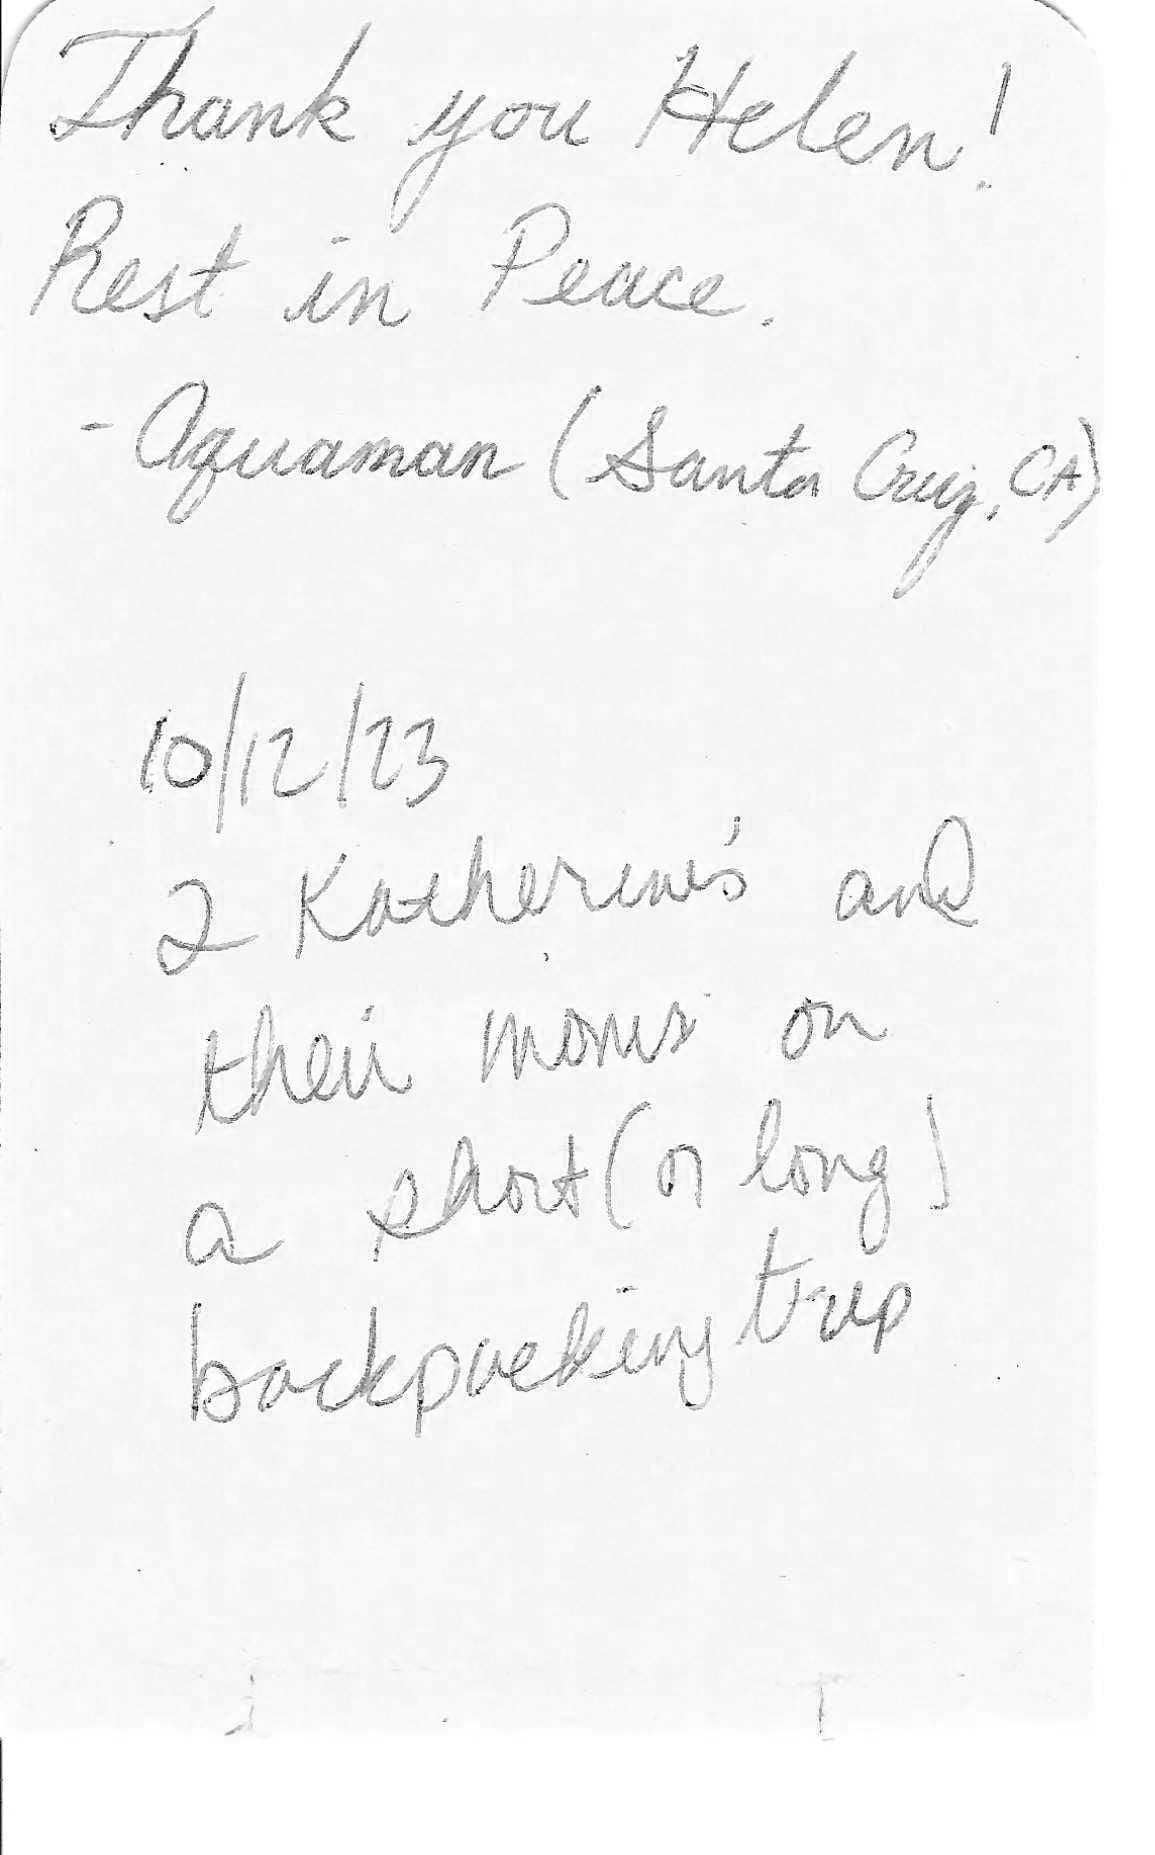 Thank you Helen!
Rest in Peace.
- Aquaman (Santa Cruz, CA)
10/12/23
2 Katherine's and
their moms on
a short (or long)
backpacking trip